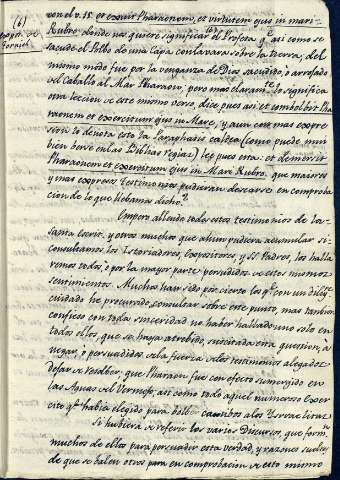 (6)
con el v. 15. et excussit Pharaonem, et virtutem ejus in mari
Rubro. donde nos quiere significar el Profeta qe. asi como se
sacude el Polbo de una Capa con la vara sobre la tierra; del
mismo modo fue por la venganza de Dios sacudido, o arrojado
el Caballo al Mar Pharaon; pero mas claramte. lo significa
otra leccion de este mismo verso, dice pues asi: et
raonem et exercitum ejus in Mare, y aun con mas expre
sion lo denota esto la Paraphasis caldea (como puede mui
bien verse en las Biblias Regias) lee pues esta: et demersit
Pharaonem et exercitum ejus in Mare Rubro. que maiores
y mas expresos testimonios pudieran desearse en comproba
cion de lo que llebamos dicho?
Empero allende todos estos testimonios de la
sacra escrit. y otros muchos que aun pudiera acumular si
consultamos, los Istoriadores, Expositores, y SS. Padres, los halla
remos todos, o por la mayor parte persuadidos de estos mismos
sentimientos. Muchos han sido por cierto los qe. con un diligte.
cuidado he procurado, consultar sobre este punto, mas tambien
confieso con toda sinceridad no haber hallado uno solo en
todos ellos, que se haya atrebido, suscitada esta question, à
negar, o persuadidos de la fuerza de los testimonios alegados
dejar de resolber, que Pharaon fue con efecto sumergido en
las Aguas del Vermejo, asi como todo aquel numeroso Exer
cito qe. habia elegido para a los Ysraelitas
Si hubiera de referir los varios Discursos, que form
muchos de ellos para persuadir esta verdad, y razones sueltas
de que se balen otros para en comprobacion de esto mismo